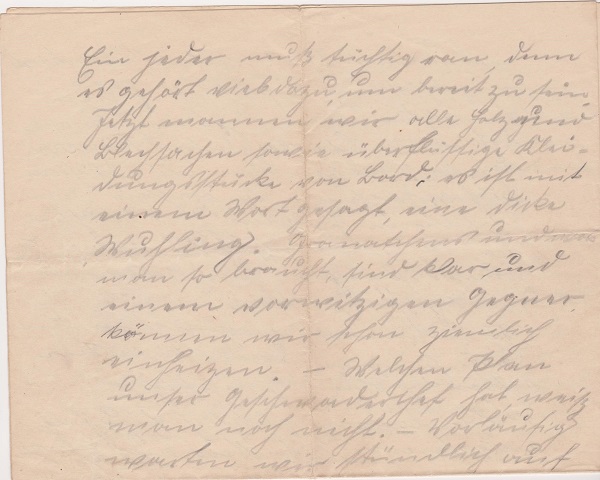 Ein jeder muß tüchtig ran, denn
es gehört viel dazu, um bereit zu sein.
Jetzt mannen wir alle Holz und
Blechsachen sowie überflüssige Klei-
dungsstücke von Bord; es ist mit
einem Wort gesagt, eine dicke
Wuhling. Granatchens und was
man so braucht, sind klar, und
einem vorwitzigen Gegner
können wir schon ziemlich
einheizen. – Welchen Plan
unser Geschwaderchef hat, weiß
man noch nicht. – Vorläufig
warten wir stündlich auf